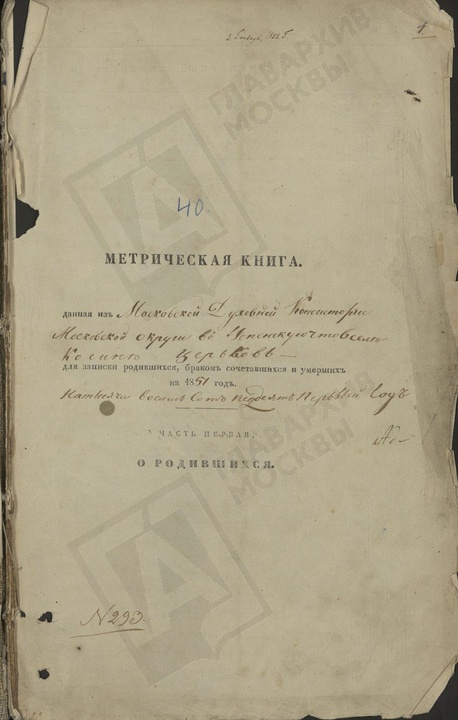 1.
ГЛАВАРХИВ
МОСКВЫ
40.
МЕТРИЧЕСКАЯ КНИГА.
данная изъ Московской Духовной Консисторіи
Московской округи въ Успенскую что въ селѣ
церьковь
для записки родившихся, бракомъ сочетавшихся и умершихъ
на 1851 годъ.
восемь сотъ первый годъ
ЧАСТЬ ПЕРВАЯ,
О РОДИВШИХСЯ.
ГЛАВАРХИВ
МОСКВЫ
№ 293.